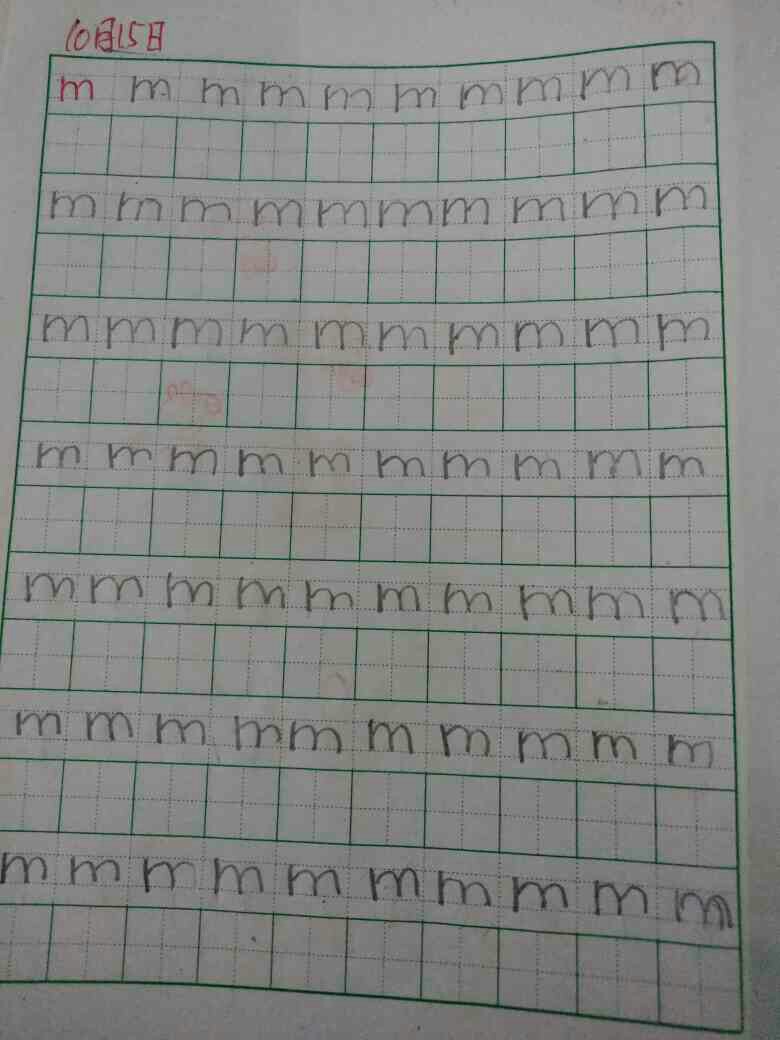 10月15日
m m m m m m m m m m
m m m m m m m m m m
m m m m m m m m m m
m m m m m m m m m m
m m m m m m m m m m
m m m m m m m m m m
m m m m m m m m m m